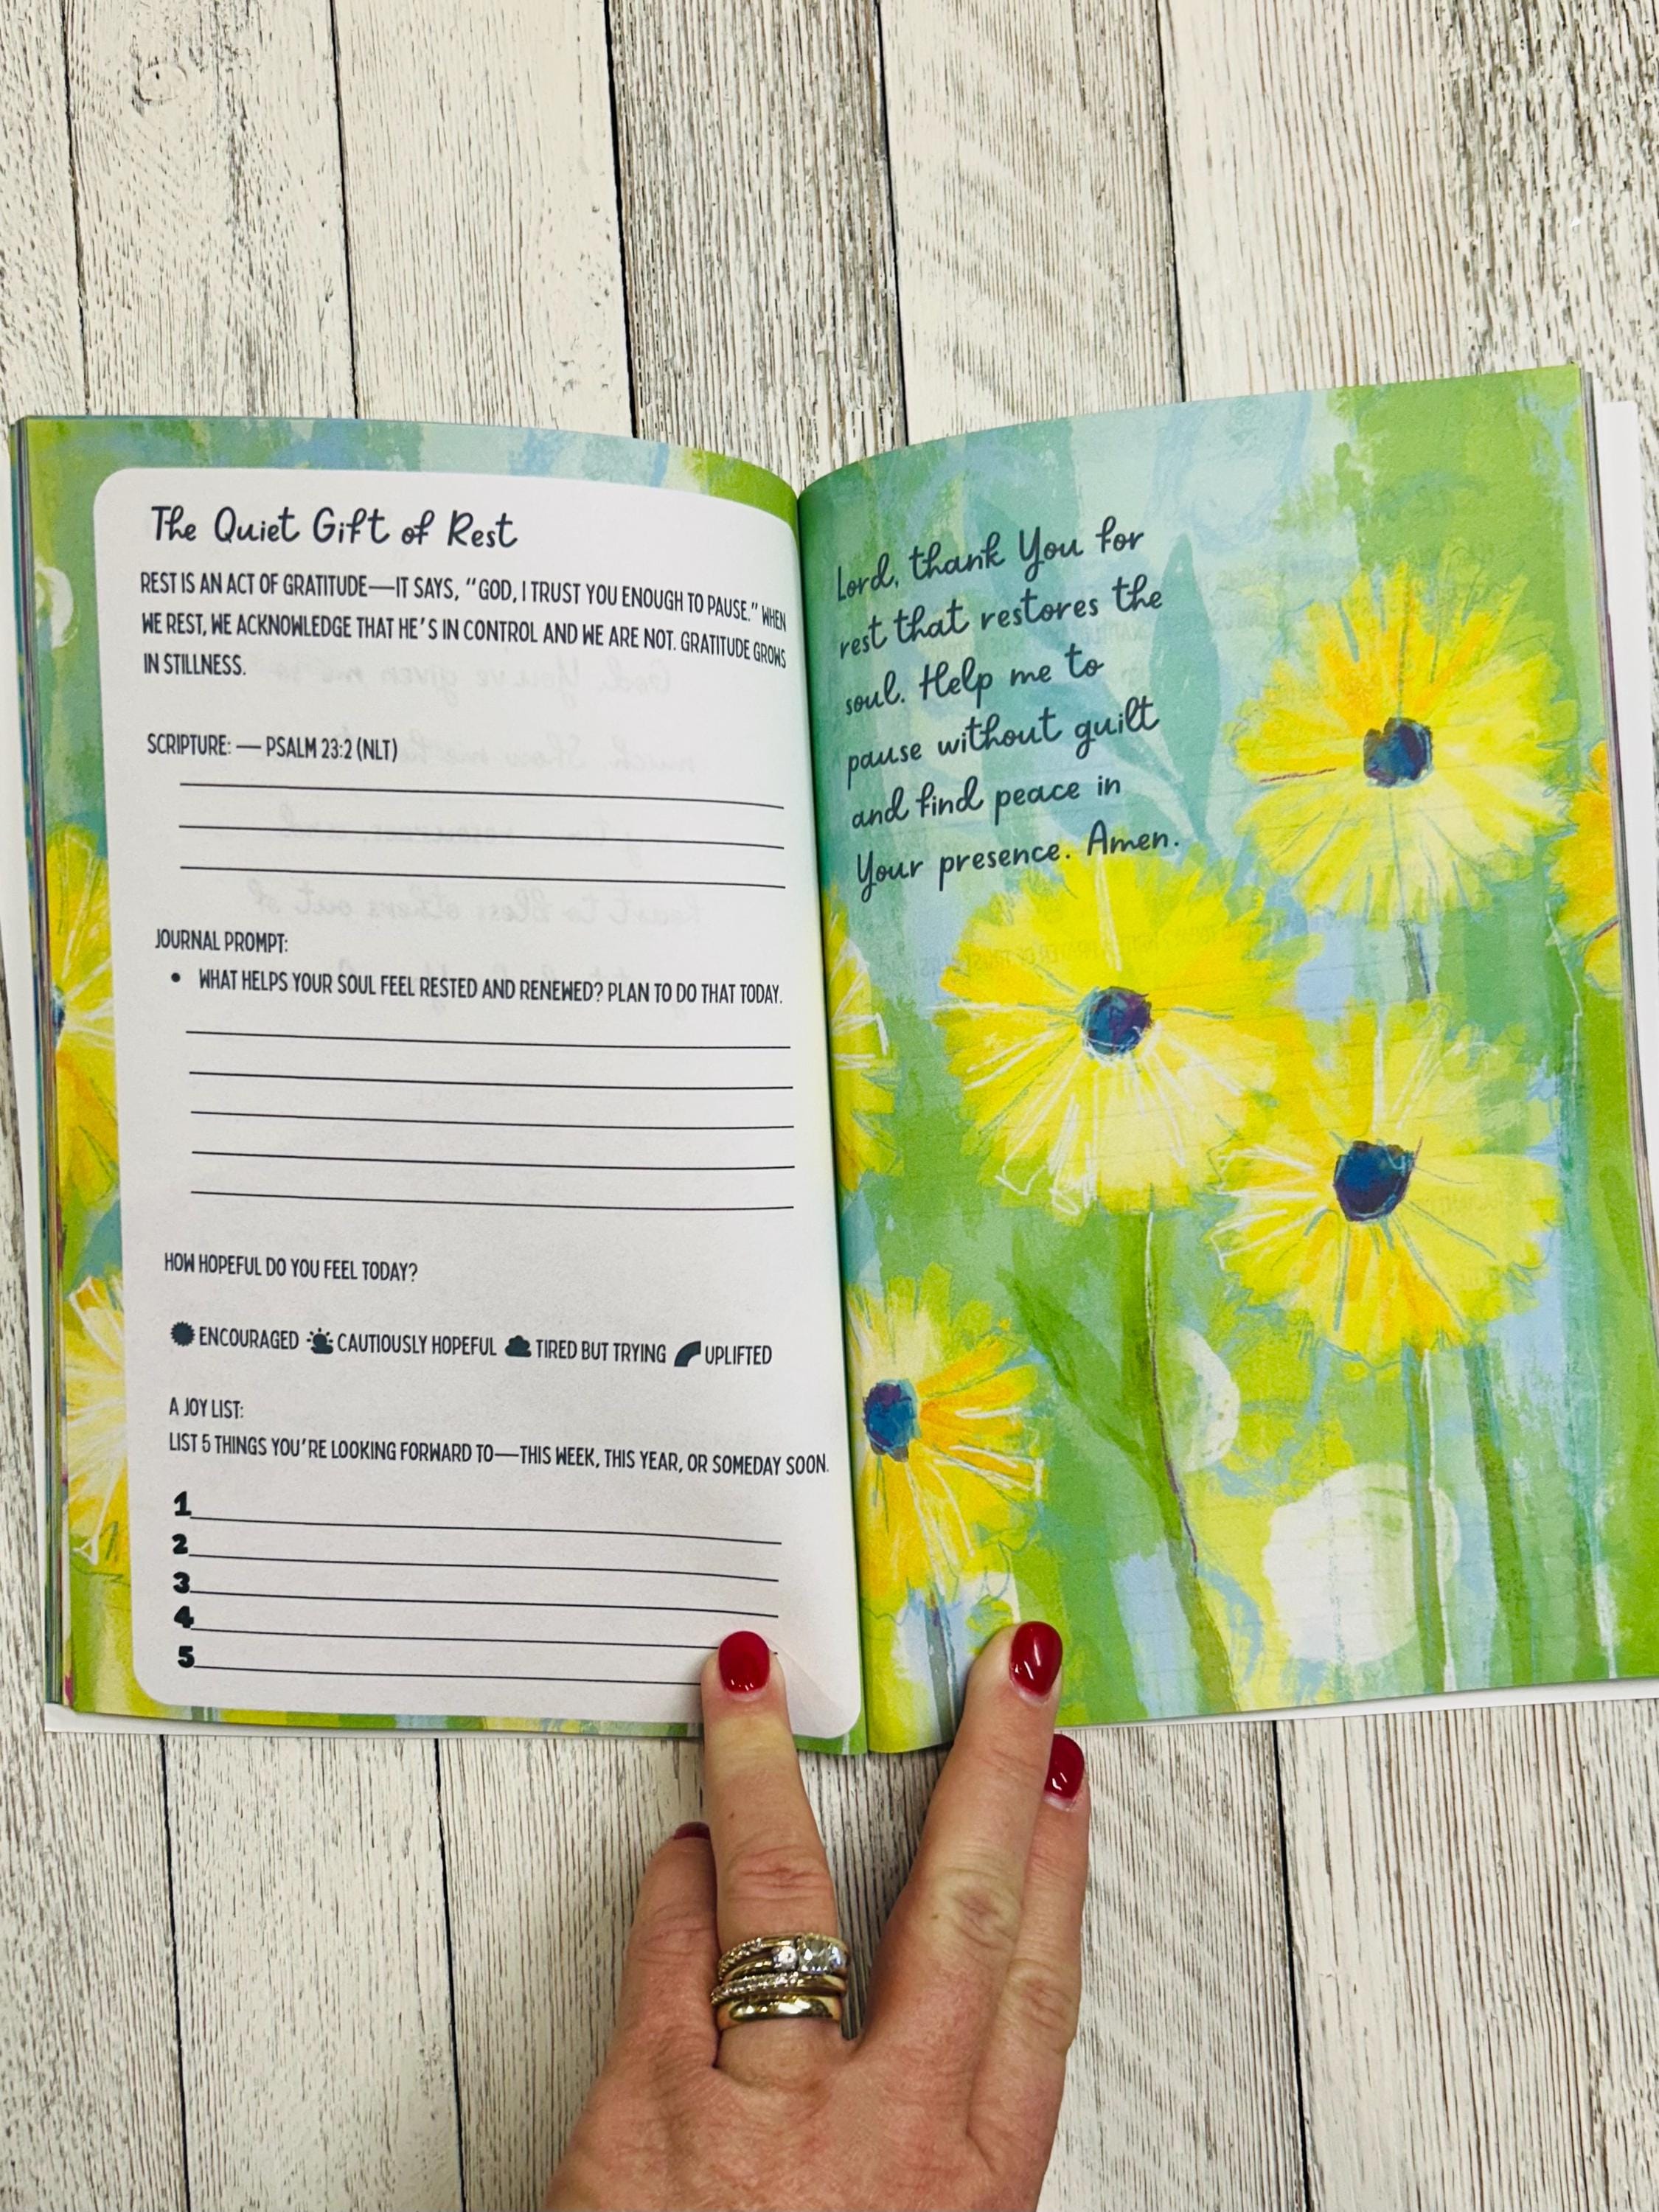 The Quiet Gift of Rest
REST IS AN ACT OF GRATITUDE—IT SAYS, “GOD, I TRUST YOU ENOUGH TO PAUSE.” WHEN
WE REST, WE ACKNOWLEDGE THAT HE’S IN CONTROL AND WE ARE NOT. GRATITUDE GROWS
IN STILLNESS.
SCRIPTURE: — PSALM 23:2 (NLT)
JOURNAL PROMPT:
• WHAT HELPS YOUR SOUL FEEL RESTED AND RENEWED? PLAN TO DO THAT TODAY.
HOW HOPEFUL DO YOU FEEL TODAY?
ENCOURAGED CAUTIOUSLY HOPEFUL TIRED BUT TRYING UPLIFTED
A JOY LIST:
LIST 5 THINGS YOU’RE LOOKING FORWARD TO—THIS WEEK, THIS YEAR, OR SOMEDAY SOON.
1
2
3
4
5
Lord, thank You for
rest that restores the
soul. Help me to
pause without guilt
and find peace in
Your presence. Amen.